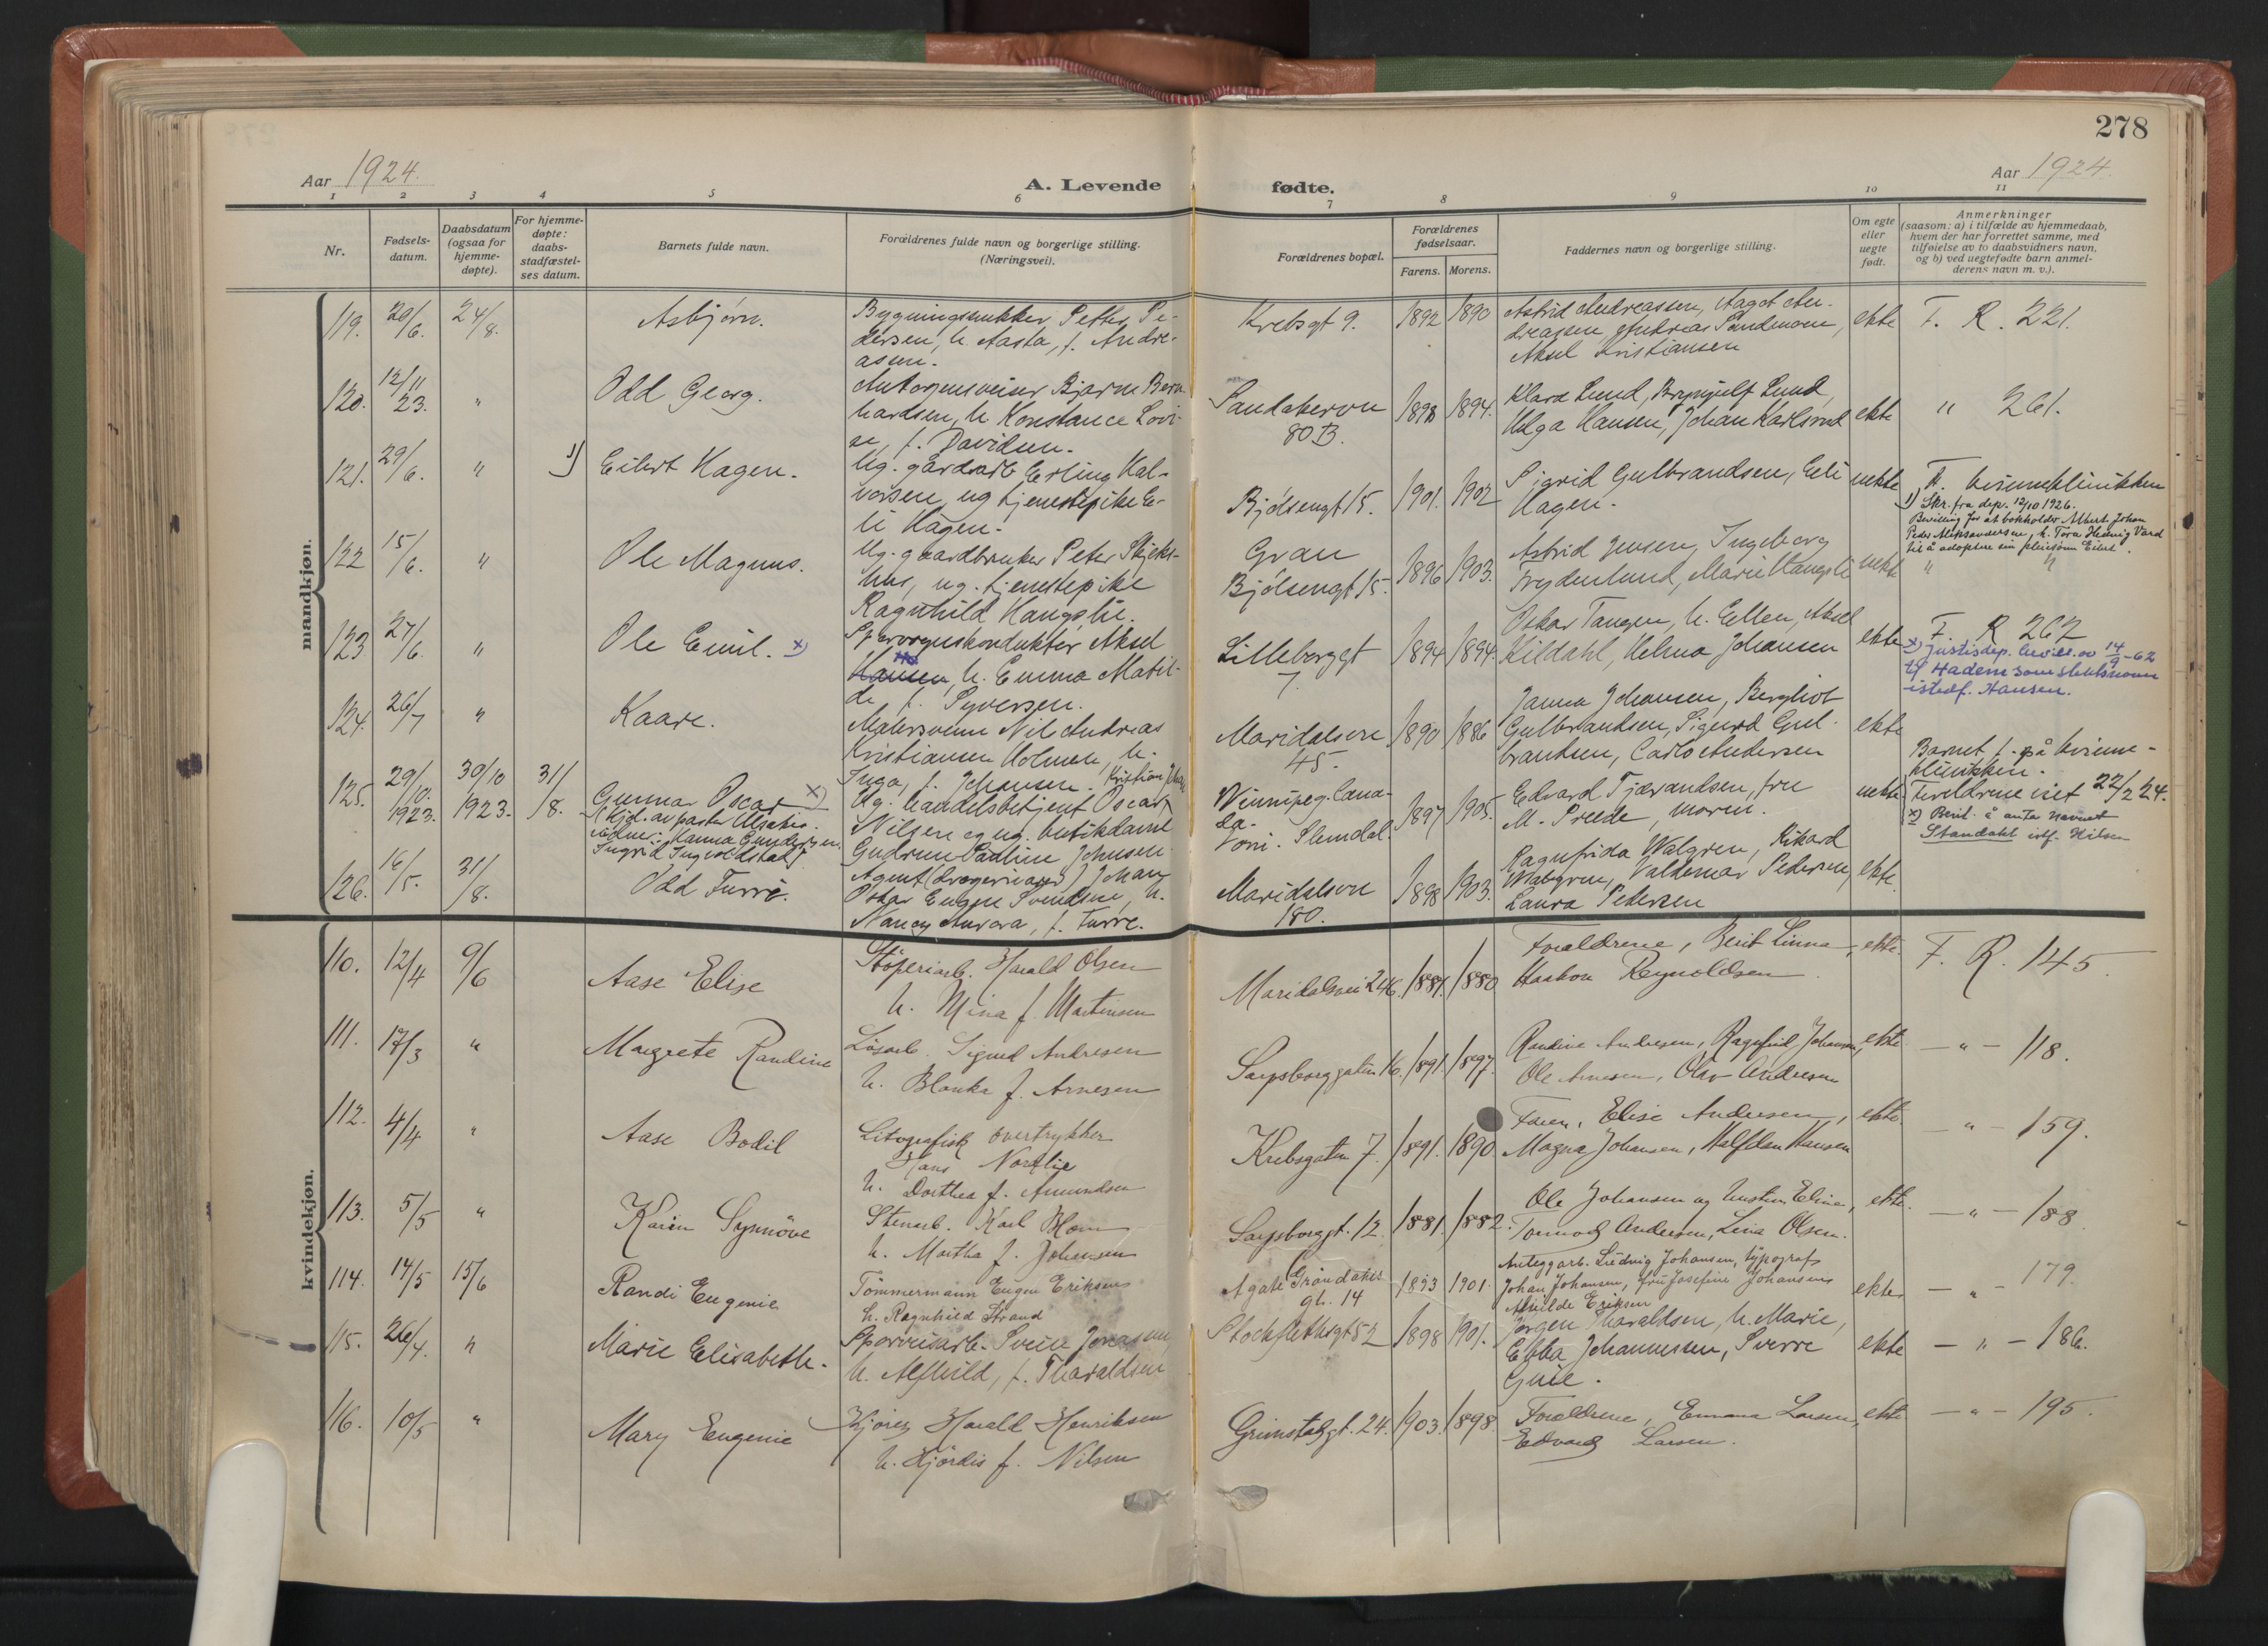 278
Aar 1924.
A. Levende
fødte.
Aar 1924.
1 2 3 4 5 6 7 8 9 10 11
Nr.
Fødsels-
datum.
Daabsdatum
(ogsaa for
hjemme-
døpte).
For hjemme-
døpte:
daabs-
stadfæstel-
ses datum.
Barnets fulde navn.
Forældrenes fulde navn og borgerlige stilling.
(Næringsvei).
Forældrenes bopæl.
Forældrenes
fødselsaar.
Farens. Morens.
Faddernes navn og borgerlige stilling.
Om egte
eller
uegte
født.
Anmerkninger
(saasom: a) i tilfælde av hjemmedaab,
hvem der har forrettet samme, med
tilføielse av to daabsvidners navn,
og b) ved uegtefødte barn anmel-
derens navn m. v.).
mandkjøn.
119. 20/6. 24/8. Asbjørn.
Bygningssnekker Petter Pe-
dersen, h. Aasta, f. Andre-
asen.
Krebsgt 9. 1892 1890
Astrid Andreassen, Aagot An-
dreassen, Andreas Sandmoen,
Aksel Kristiansen
ekte F. R. 221.
120. 12/11 23. " Odd Georg.
Bjarne Bern-
hardsen, h. Konstance Lovi-
se, f. Davidsen.
Sandakervn
80 B.
1898 1894.
Klara Lund, Brynjulf Lund,
Helga Hansen, Johan Karlsrud
ekte " 261.
121. 29/6. " 1) Eilert Hagen.
Ug. gårdarb Erling Hal-
vorsen, ug tjenestepike E-
li Hagen.
Bjölsengt 15. 1901. 1902
Sigrid Gulbrandsen, Eli
Hagen.
uekte F. kvinneklinikken
1) Skr. fra dep. 12/10 1926.
Bevilling for at bokholder Albert Johan
Peder Aleksandersen, h. Tora Hennig Vard
til å adoptere sin pleiesønn Eilert.
122 15/6. " Ole Magnus.
Ug. gaardbruker Peter Skjeks-
hus, ug. tjenestepike
Ragnhild Haugslie.
Gran
Bjölsengt 15. 1896 1903.
Astrid Jensen, Ingeborg
Frydenlund, Marie Haugsli
uekte " "
123 27/6. " Ole Emil. x)
Sporvognskonduktør Aksel
Hansen, h. Emma Matil-
de f. Syversen.
Lilleborggt
7.
1894 1894.
Oskar Tangen, h. Ellen, Aksel
Kildahl, Helma Johansen
ekte F. R 267
x) Justisdep. bevill. av 14/9-62
til Hadem som slektsnavn
istedf. Hansen.
124. 26/7 " Kaare.
Malersvenn Nil Andreas
Kristiansen Holmen, h.
Inga, f. Johansen.
Maridalsvn
45.
1890 1886
Janna Johansen, Bergliot
Gulbrandsen, Sigurd Gul-
brandsen, Carlo Andersen
ekte
125. 29/10. 1923. 30/10 1923. 31/8. Gunnar Oscar x)
Hjd. av pastor
vidner: Hanna Gundersen
Ingrid Ingvoldstad
Kristian Johan
Ug. handelsbetjent Oscar
Nilsen og ug. butikdame
Gudrun Pauline Johnsen
Winnipeg. Cana-
da.
Slemdal.
1897 1905.
Edvard Tjærandsen, fru
M. Preede, moren.
uekte
Barnet f. på kvinne-
klinikken.
Foreldrene viet 22/2 24.
x) Beril. å anta navnet
Standahl istf. Nilsen
126. 16/5. 31/8. Odd Furre.
Agent Johan
Oskar Eugen Svendsen, h.
Nancy Aurora, f. Furre.
Maridalsvn
180.
1898 1903.
Ragnfrida Walgren, Rikard
Walgren, Valdemar Pedersen,
Laura Pedersen
ekte.
kvindekjøn.
110. 12/4 9/6 Aase Elise
Støperiarb. Harald Olsen
h. Mina f. Martinsen
Maridalsvei 246. 1884. 1880
Forældrene, Berit Linna
Haakon Reynoldsen.
ekte F. R. 145.
111. 17/3 " Margrete Randine
Løsarb. Sigurd Andresen
h. Blanka f. Arnesen
Sarpsborggaten 16. 1891. 1897.
Randine Andresen, Ragnfrid Johansen,
Ole Arnesen, Olav Andresen
ekte — " — 118.
112. 4/4 " Aase Bodil
Litografisk overtrykker
Hans Nordlie
h. Dorthea f. Amundsen
Krebsgaten 7. 1891. 1890
Faren, Elise Andersen,
Magna Johansen, Halfdan Hansen
ekte — " — 159.
113. 5/5 " Karin Synnöve
Stenarb. Karl Blom
h. Martha f. Johansen
Sarpsborggt. 12. 1881. 1882.
Ole Johansen og hustru Eline,
Tormod Andersen, Lina Olsen.
ekte. — " — 188.
114. 14/5 15/6 Randi Eugenie
Tömmermann Eugen Eriksen
h. Ragnhild Strand
Agate Gröndahls
gt. 14
1893 1901.
Anleggarb. Ludvig Johansen, typograf
Johan Johansen, fru Josefine Johansen
Alvilde Eriksen
ekte — " — 179.
115. 26/4. " Marie Elisabeth.
Sporveisarb. Svein Jonassen,
h. Alfhild, f. Tharaldsen
Stockflethsgt 52 1898 1901.
Jørgen Tharaldsen, h. Marie,
Ebba Johannessen, Sverre
Guie.
ekte — " — 186.
116. 10/5 " Mary Eugenie
Kjörer Harald Henriksen
h. Hjördis f. Nilsen
Grimstadgt. 24. 1903. 1898.
Forældrene, Emma Larsen,
Edvard Larsen.
ekte — " — 195.